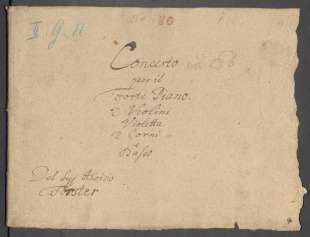 No 80
II. g. 12
Concerto in B
per il
Forte Piano.
2 Violini
Violetta
2 Corni
Basso
Del Sigr Aloisio
Förster